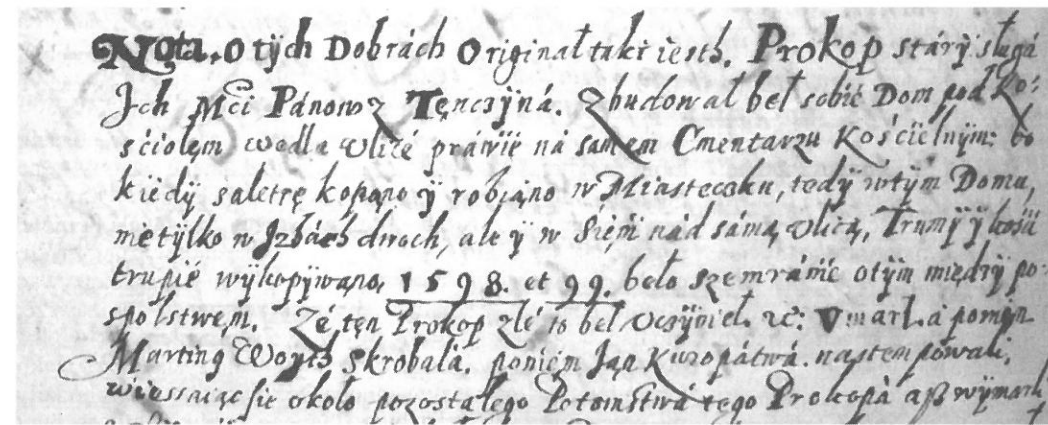 Nota. O tÿch Dobrách Originał taki iesth. Prokop stárÿ sługá
Ich Mći Pánow z Tęncżÿná. Zbudował beł sobié Dom pod Ko:
śćiołęm wedla Vlicé práwié ná samęm Cmentarzu Kośćielnÿm: bo
kiedÿ saletrę kopąno ÿ robiąno w Miasteczku, tedÿ wtÿm Domu,
nietÿlko w Izbách dwoch, ale ÿ w Sięni nád sámą Vlicą, Trumÿ ÿ kośći
trupié wÿkopÿwąno. 1598. et 99. beło szemránié otÿm międzÿ po:
spolstwęm. Zé tęn Prokop zlé to beł Vczÿnieł. ꝛc: Vmarł. a po niem
Marting Woyth Skrobala. poniem Jąn Kuropátwá. nastempowali,
wiessaiąc sie około pozostałego Potomstwá tego Prokopá aß wÿmarli